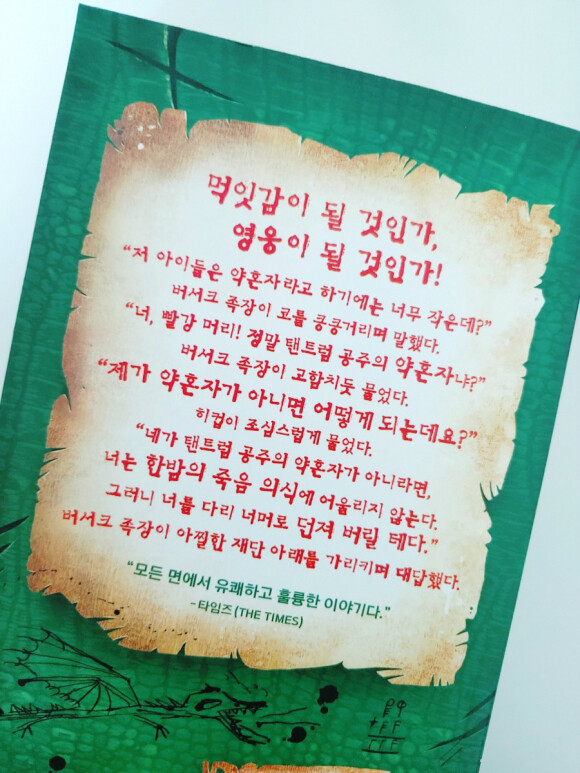 먹잇감이 될 것인가,
영웅이 될 것인가!
“저 아이들은 약혼자라고 하기에는 너무 작은데?”
버서크 족장이 코를 킁킁거리며 말했다.
“너, 빨강 머리! 정말 탠트럼 공주의 약혼자냐?”
버서크 족장이 고함치듯 물었다.
“제가 약혼자가 아니면 어떻게 되는데요?”
히컵이 조심스럽게 물었다.
“네가 탠트럼 공주의 약혼자가 아니라면,
너는 한밤의 죽음 의식에 어울리지 않는다.
그러니 너를 다리 너머로 던져 버릴 테다.”
버서크 족장이 아찔한 재단 아래를 가리키며 대답했다.
“모든 면에서 유쾌하고 훌륭한 이야기다.”
- 타임즈 (THE TIMES)
+FF
FFF